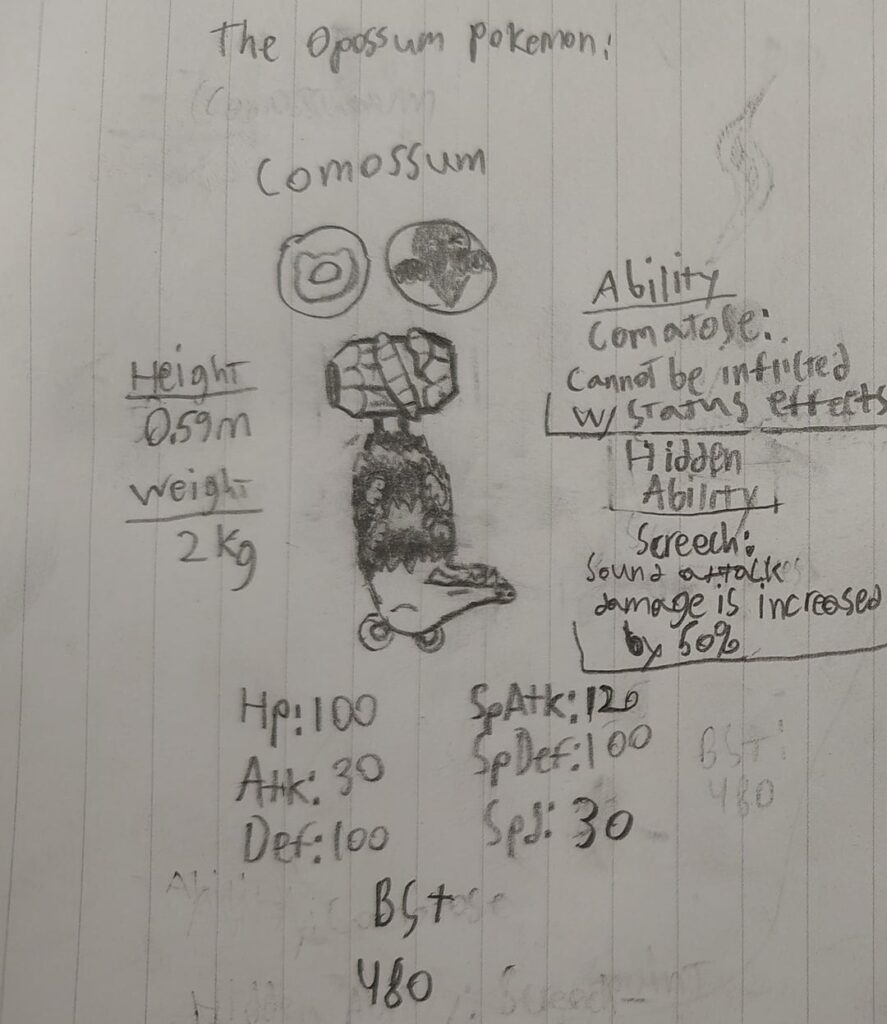 The Opossum Pokemon:
Comossum
Height
0.59m
Weight
2 Kg
Ability
Comatose:
Cannot be inflicted
W/ status effects
Hidden
Ability
Screech:
Sound attacks
damage is increased
by 50%
Hp: 100
Atk: 30
Def: 100
SpAtk: 120
SpDef: 100
Spd: 30
BSt:
480
BSt
480